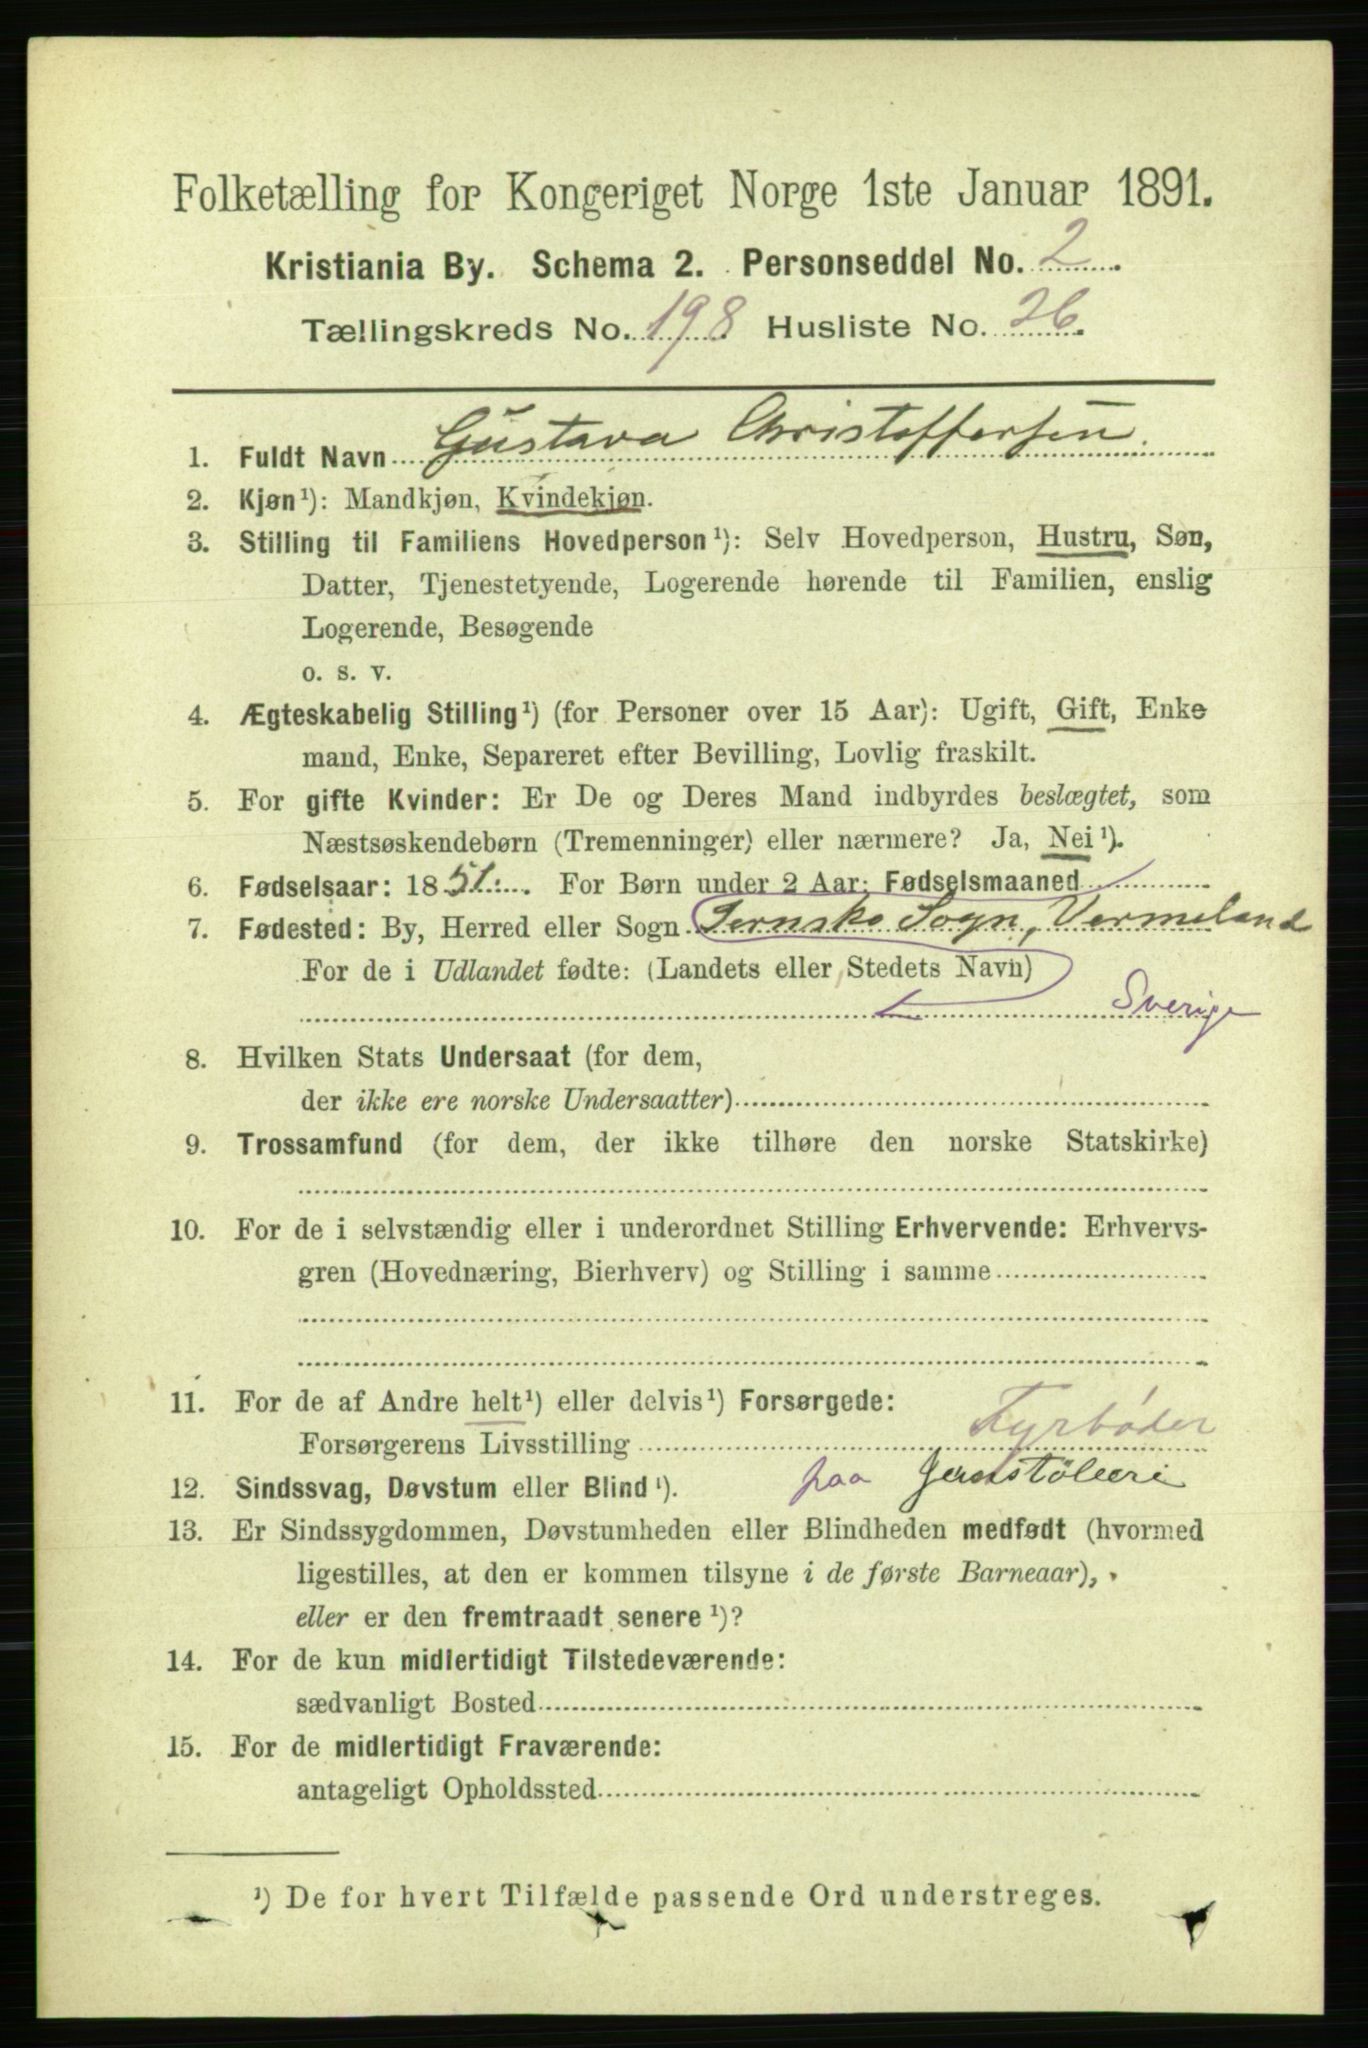 Folketælling for Kongeriget Norge 1ste Januar 1891.
Kristiania By. Schema 2. Personseddel No. 2.
Tællingskreds No. 198 Husliste No. 26.
1. Fuldt Navn Gustava Christoffersen.
2. Kjøn¹): Mandkjøn, Kvindekjøn.
3. Stilling til Familiens Hovedperson¹): Selv Hovedperson, Hustru, Søn,
Datter, Tjenestetyende, Logerende hørende til Familien, enslig
Logerende, Besøgende
o. s. v.
4. Ægteskabelig Stilling¹) (for Personer over 15 Aar): Ugift, Gift, Enke
mand, Enke, Separeret efter Bevilling, Lovlig fraskilt.
5. For gifte Kvinder: Er De og Deres Mand indbyrdes beslægtet, som
Næstsøskendebørn (Tremenninger) eller nærmere? Ja, Nei¹).
6. Fødselsaar: 1851. For Børn under 2 Aar: Fødselsmaaned
7. Fødested: By, Herred eller Sogn Jernsko Sogn, Vermeland
For de i Udlandet fødte: (Landets eller Stedets Navn)
Sverige
8. Hvilken Stats Undersaat (for dem,
der ikke ere norske Undersaatter)
9. Trossamfund (for dem, der ikke tilhøre den norske Statskirke)
10. For de i selvstændig eller i underordnet Stilling Erhvervende: Erhvervs-
gren (Hovednæring, Bierhverv) og Stilling i samme
11. For de af Andre helt¹) eller delvis¹) Forsørgede:
Forsørgerens Livsstilling Fyrbøder
12. Sindssvag, Døvstum eller Blind¹). paa Jernstöberi
13. Er Sindssygdommen, Døvstumheden eller Blindheden medfødt (hvormed
ligestilles, at den er kommen tilsyne i de første Barneaar),
eller er den fremtraadt senere¹)?
14. For de kun midlertidigt Tilstedeværende:
sædvanligt Bosted
15. For de midlertidigt Fraværende:
antageligt Opholdssted
¹) De for hvert Tilfælde passende Ord understreges.